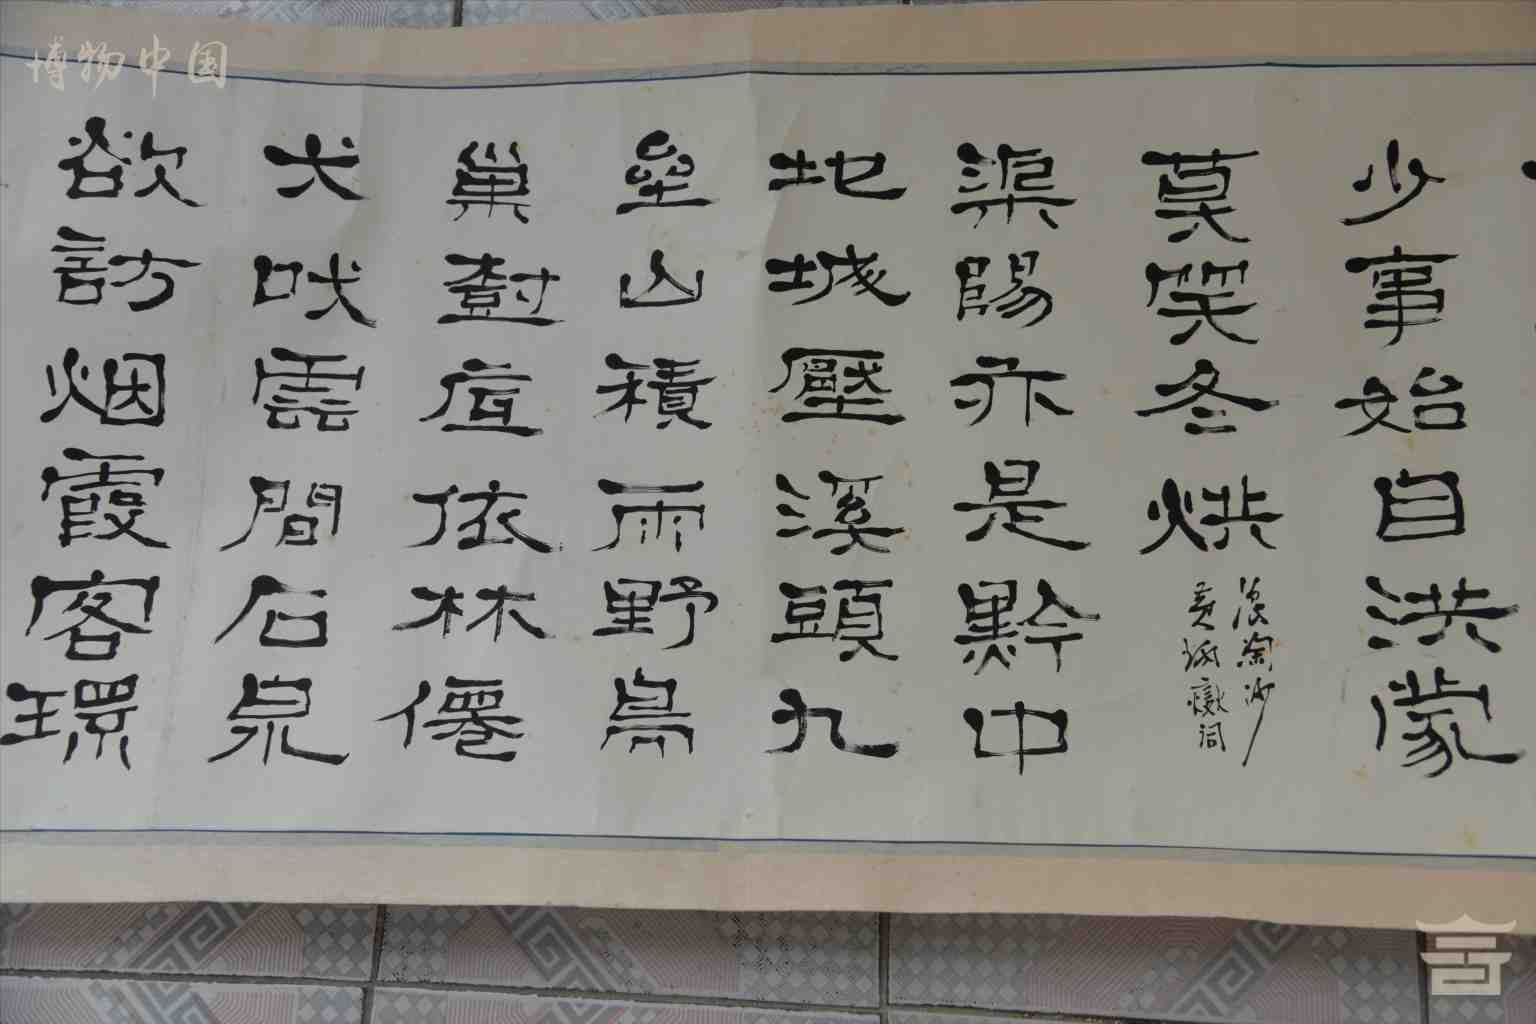 博物中国
少事始自洪蒙
莫笑冬烘
浪淘沙
黄詞
渠陽亦是黔中
地城壓溪頭九
垒山積雨野鳥
巢依林僊
犬吠雲間石泉
欲訪烟霞客環